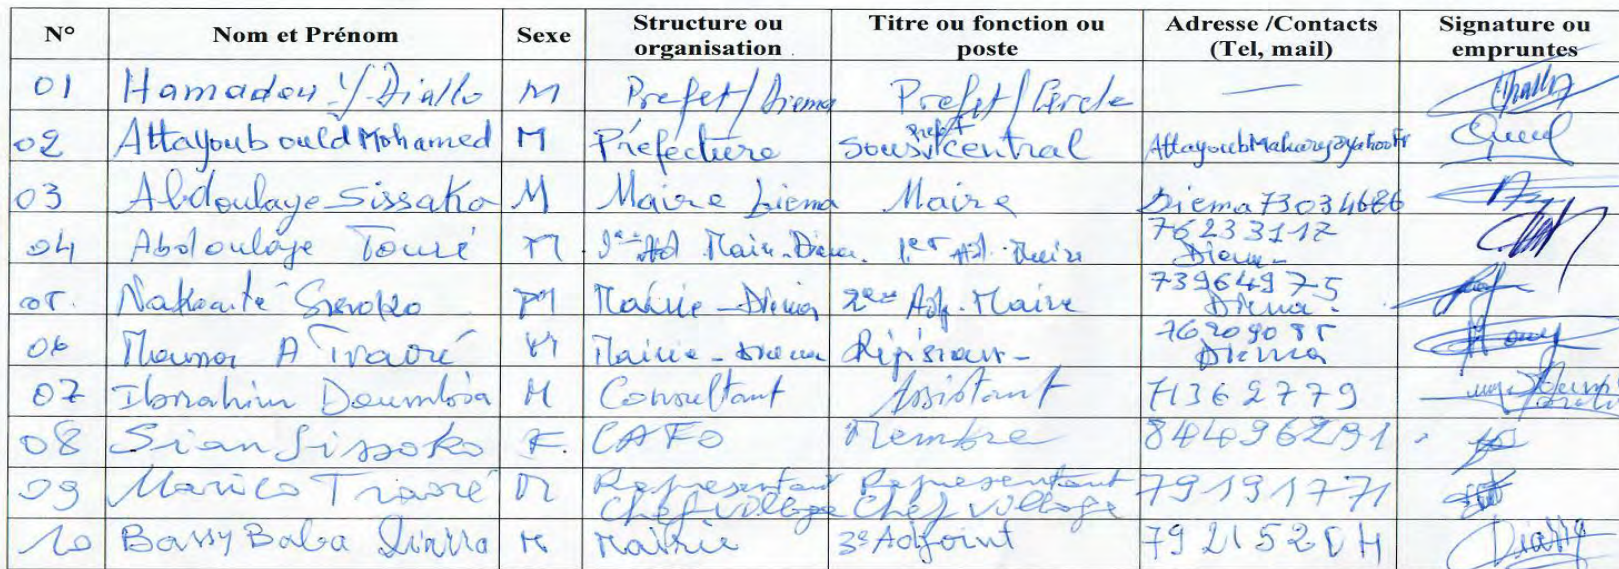 N° Nom et Prénom Sexe Structure ou organisation Titre ou fonction ou poste Adresse /Contacts (Tel, mail) Signature ou empruntes
01 Hamadou Y Diallo M Prefet/Diema Prefet/Cercle —
02 Attayoub ould Mohamed M Préfecture Sous prefet central
03 Abdoulaye Sissako M Maire Diema Maire Diema 73034686
04 Abdoulaye Touré M 1er Ad. Maire 76233112 Diema
05 M Mairie - Diema 2eme Adj. Maire 73964975 Diema
06 A Traoré M Mairie - Diema 76209085 Diema
07 Ibrahim Doumbia M Consultant Assistant 71362779
08 Sian Sissoko F. CAFO Membre 84496291
09 Traoré M Representant Chef village Representant Chef village 79191771
10 Baba Diarra M Mairie 3e Adjoint 79215204 Diarra